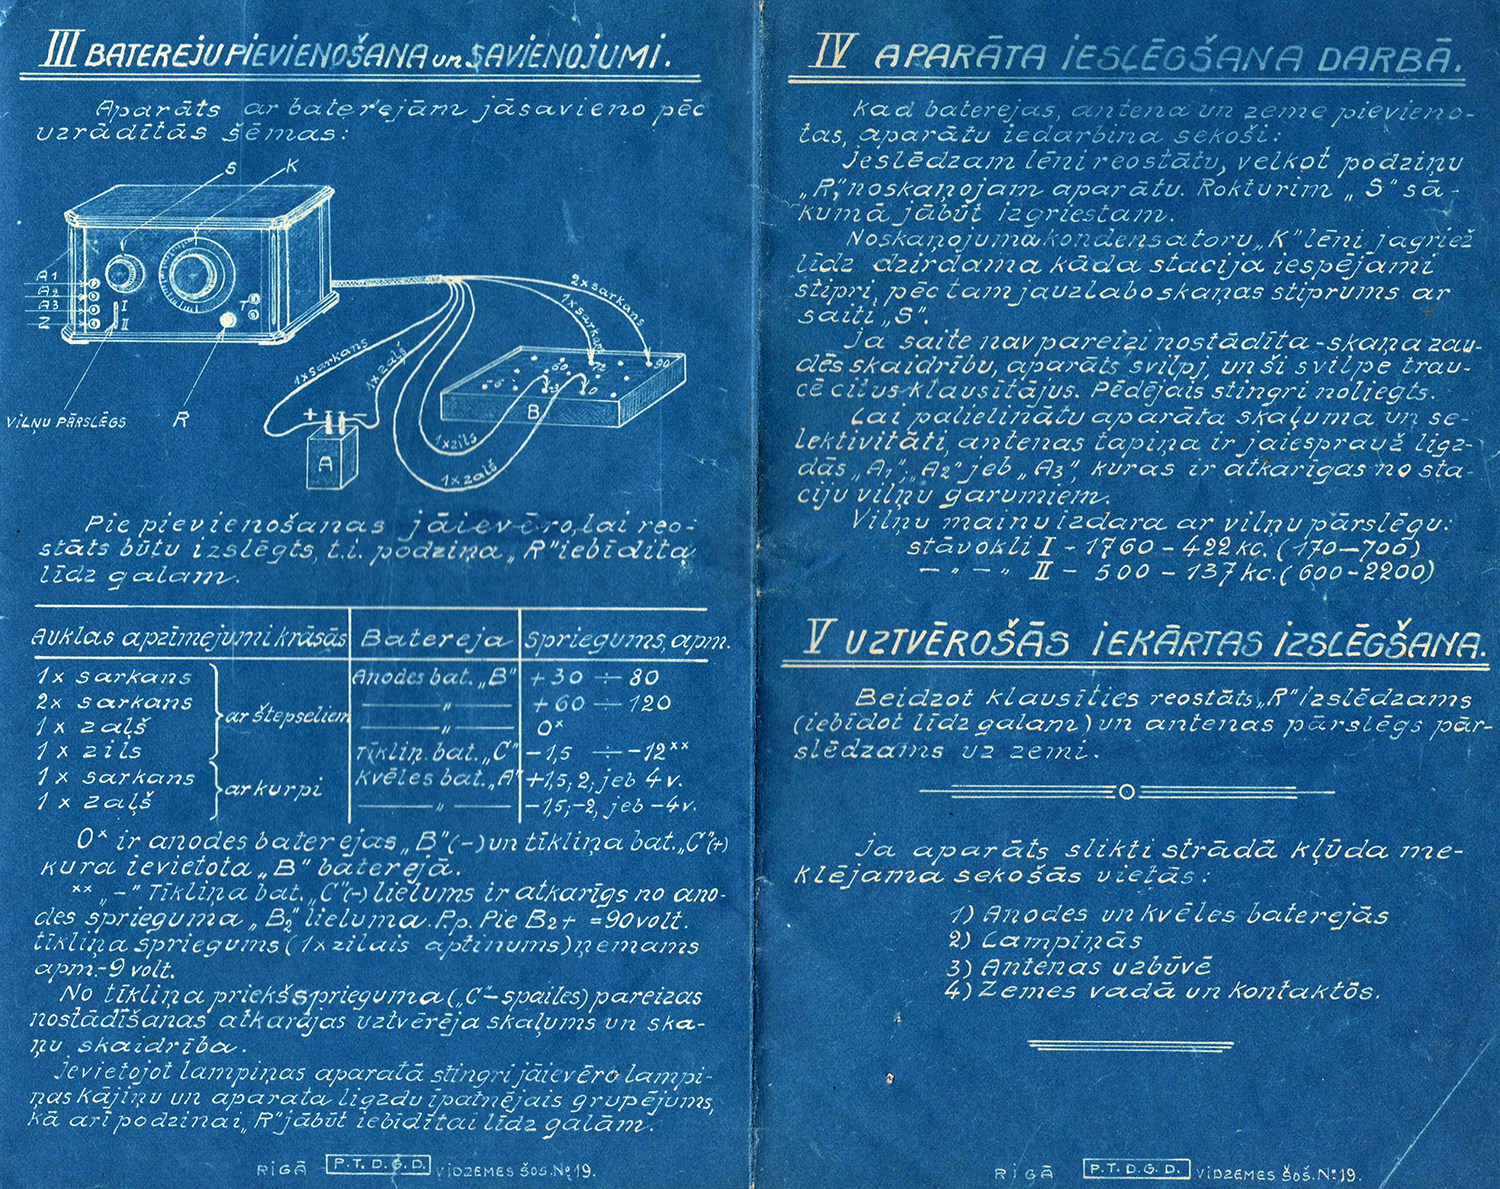 III BATEREJU PIEVIENOŠANA un SAVIENOJUMI.
Aparāts ar baterejām jāsavieno pēc
uzrādītās šēmas:
S K
A1
A2
A3
Z
I
II
VIĻŅU PĀRSLĒGS
R
1x sarkans
1x zaļš
+ -
A
2x sarkans
1x sarkans
90
72
60
-3
0
-6
B
1x zils
1x zaļš
Pie pievienošanas jāievēro, lai reo-
stāts būtu izslēgts, t.i. podziņa „R" iebīdīta
līdz galam.
Auklas apzīmejumi krāsās Batereja Spriegums, apm.
1 x sarkans Anodes bat. „B" +30 ÷ 80
2 x sarkans — „ — +60 ÷ 120
ar štepseliem
1 x zaļš — „ — 0ˣ
1 x zils Tīkliņ. bat. „C" -1,5 ÷ -12ˣˣ
1 x sarkans Kvēles bat. „A" +1,5; 2; jeb 4 v.
ar kurpi
1 x zaļš — „ — -1,5; -2, jeb -4 v.
0ˣ ir anodes baterejas „B" (-) un tīkliņa bat. „C" (+)
kura ievietota „B" baterejā.
ˣˣ „-" Tīkliņa bat. „C" (-) lielums ir atkarīgs no ano-
des sprieguma „B2" lieluma. P.p. Pie B2+ = 90 volt.
tīkliņa spriegums (1x zilais aptinums) ņemams
apm. -9 volt.
No tīkliņa priekšsprieguma („C"- spailes) pareizas
nostādīšanas atkarājas uztvērēja skaļums un ska-
ņu skaidrība.
Ievietojot lampiņas aparatā stingri jāievēro lampi-
ņas kājiņu un aparata ligzdu īpatnējais grupējums,
kā arī podzinai „R" jābūt iebīdītai līdz galām.
RIGĀ P.T.D.G.D. VIDZEMES ŠOS. № 19.
IV APARĀTA IESLĒGŠANA DARBĀ.
Kad baterejas, antena un zeme pievieno-
tas, aparātu iedarbina sekoši:
Ieslēdzam lēni reostātu, velkot podziņu
„R", noskaņojam aparātu. Rokturim „S" sā-
kumā jābūt izgriestam.
Noskaņojuma kondensatoru „K" lēni jagriež
līdz dzirdama kāda stacija iespējami
stipri, pēc tam jauzlabo skaņas stiprums ar
saiti „S".
Ja saite nav pareizi nostādīta - skaņa zau-
dēs skaidrību, aparāts svilpj, un ši svilpe trau-
cē citus klausītājus. Pēdējais stingri noliegts.
Lai palielinātu aparāta skaļuma un se-
lektivitāti, antenas tapiņa ir jaiesprauž ligz-
dās „A1", „A2" jeb „A3", kuras ir atkarīgas no sta-
ciju viļņu garumiem.
Viļņu maiņu izdara ar viļņu pārslēgu:
stāvokli I - 1760 - 422 kc. (170 - 700)
— „ — „ II - 500 - 137 kc. (600 - 2200)
V UZTVĒROŠĀS IEKĀRTAS IZSLĒGŠANA.
Beidzot klausīties reostāts „R" izslēdzams
(iebīdot līdz galam) un antenas pārslēgs pār-
slēdzams uz zemi.
Ja aparāts slikti strādā kļūda me-
klējama sekošās vietās:
1) Anodes un kvēles baterejās
2) Lampiņās
3) Antenas uzbūvē
4) Zemes vadā un kontaktōs.
RIGĀ P.T.D.G.D. VIDZEMES ŠOS. № 19.